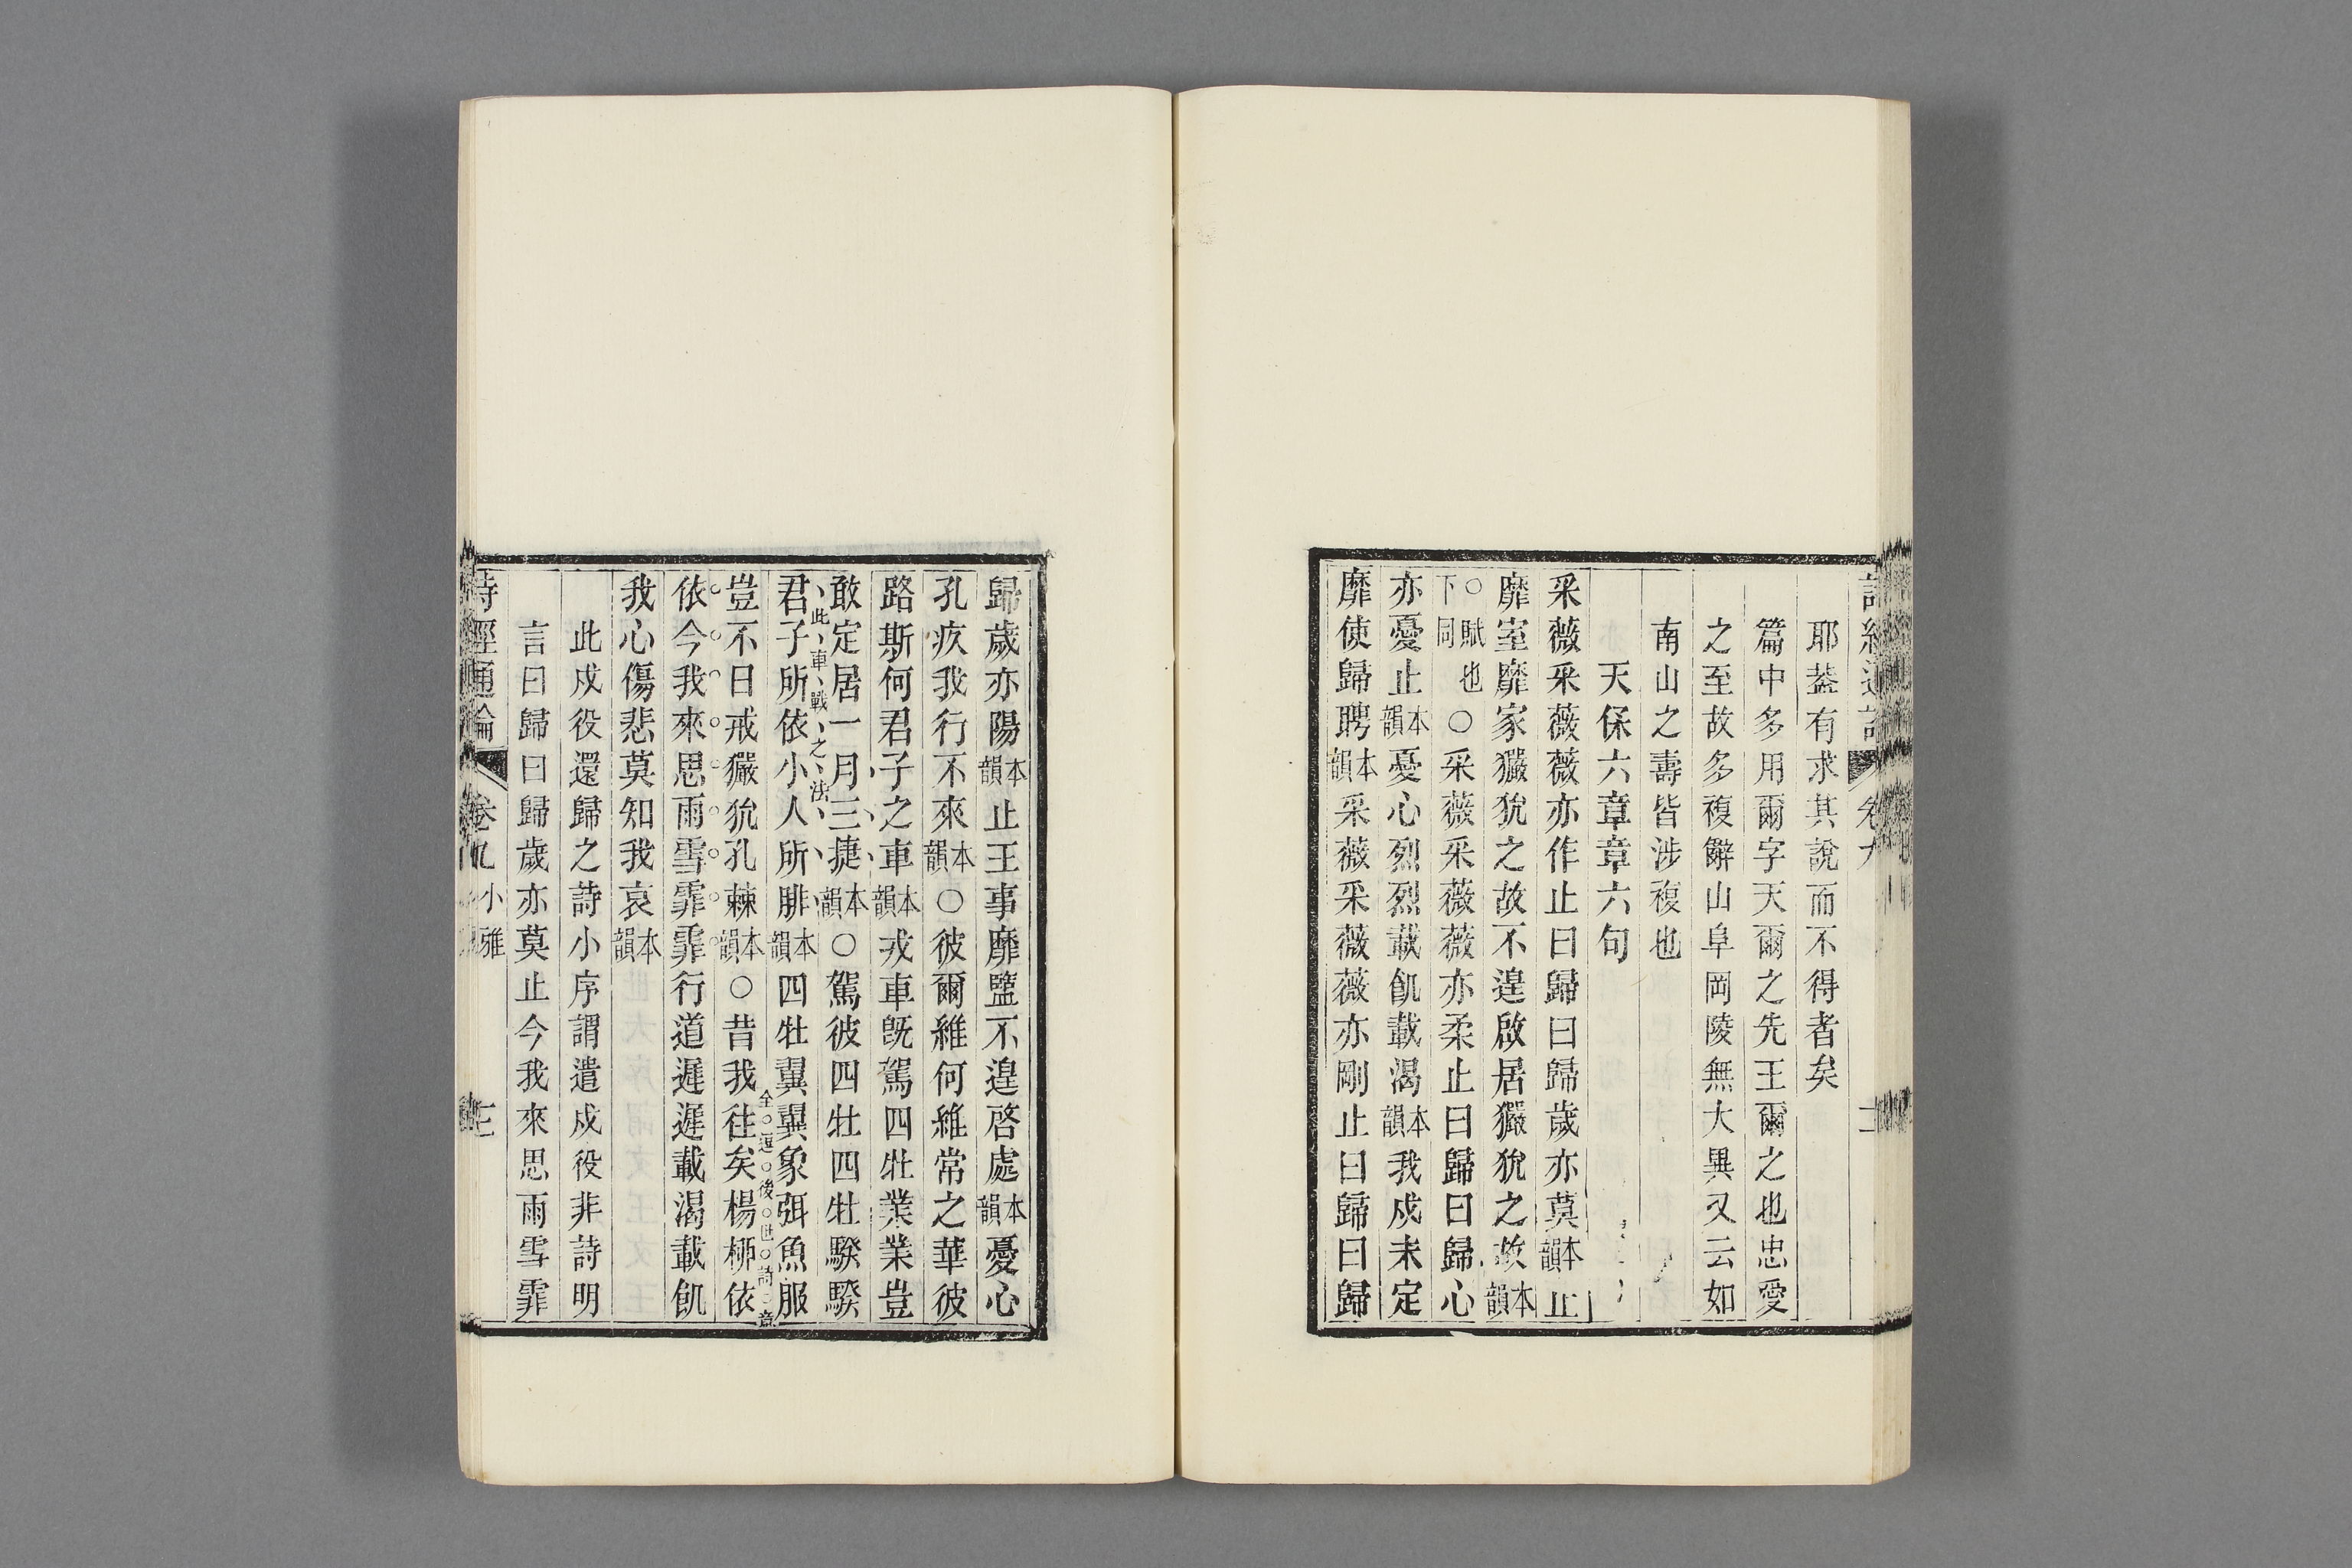 耶葢有求其說而不得者矣
篇中多用爾字天爾之先王爾之也忠愛
之至故多複辭山阜岡陵無大異又云如
南山之壽皆涉複也
天保六章章六句
采薇采薇薇亦作止曰歸曰歸歲亦莫本韻止
靡室靡家玁狁之故不遑啟居玁狁之故本韻
○賦也下同○采薇采薇薇亦柔止曰歸曰歸心
亦憂止本韻憂心烈烈載飢載渴本韻我戍未定
靡使歸聘本韻采薇采薇薇亦剛止曰歸曰歸
歸歲亦陽本韻止王事靡盬不遑啓處本韻憂心
孔疚我行不來本韻○彼爾維何維常之華彼
路斯何君子之車本韻戎車旣駕四牡業業豈
敢定居一月三捷本韻○駕彼四牡四牡騤騤
此車戰之法
君子所依小人所腓本韻四牡翼翼象弭魚服
豈不日戒玁狁孔棘本韻○昔我往矣楊栁依
依今我來思雨雪霏霏行道遲遲載渴載飢
我心傷悲莫知我哀本韻
此戍役還歸之詩小序謂遣戍役非詩明
言曰歸曰歸歲亦莫止今我來思雨雪霏
詩經通論 卷九 小雅